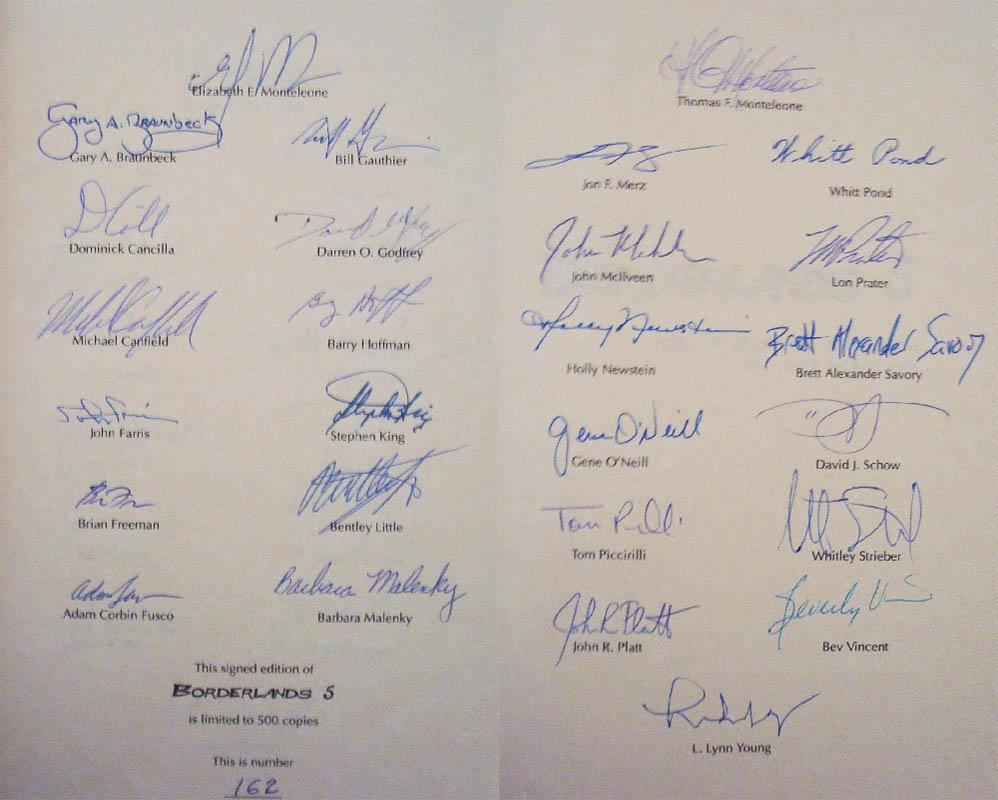 Elizabeth E. Monteleone
Gary A. Braunbeck
Gary A. Braunbeck
Bill Gauthier
Dominick Cancilla
Darren O. Godfrey
Michael Canfield
Barry Hoffman
John Farris
Stephen King
Stephen King
Brian Freeman
Bentley Little
Adam Corbin Fusco
Barbara Malenky
Barbara Malenky
This signed edition of
BORDERLANDS 5
is limited to 500 copies
This is number
162
Thomas F. Monteleone
Jon F. Merz
Whitt Pond
Whitt Pond
John McIlveen
Lon Prater
Holly Newstein
Holly Newstein
Brett Alexander Savory
Brett Alexander Savory
Gene O'Neill
Gene O'Neill
David J. Schow
Tom Piccirilli
Whitley Strieber
John R Platt
John R. Platt
Bev Vincent
L. Lynn Young